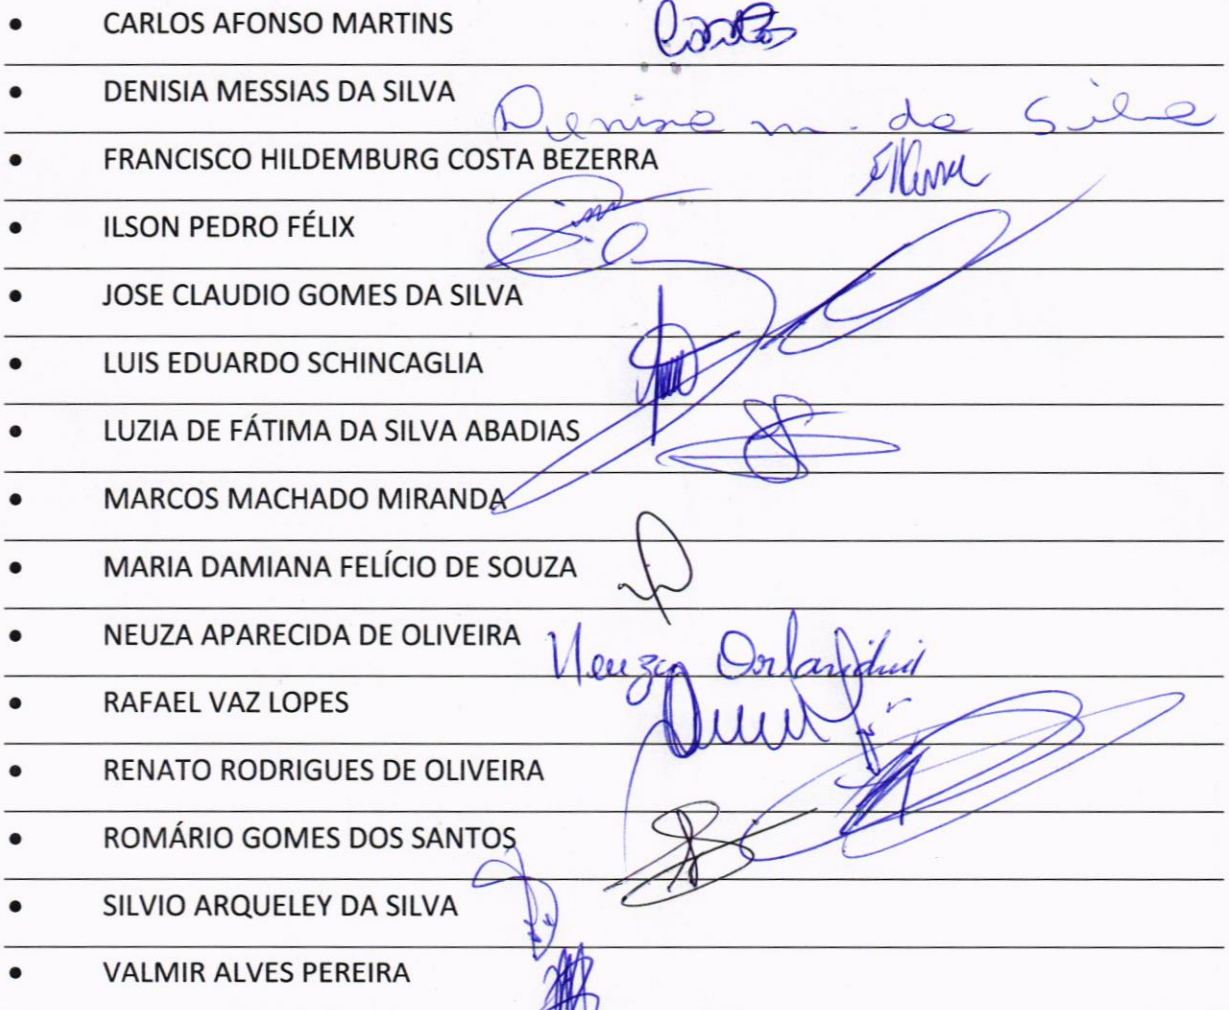 • CARLOS AFONSO MARTINS Carlos
• DENISIA MESSIAS DA SILVA Denise m. da Silva
• FRANCISCO HILDEMBURG COSTA BEZERRA
• ILSON PEDRO FÉLIX
• JOSE CLAUDIO GOMES DA SILVA
• LUIS EDUARDO SCHINCAGLIA
• LUZIA DE FÁTIMA DA SILVA ABADIAS
• MARCOS MACHADO MIRANDA
• MARIA DAMIANA FELÍCIO DE SOUZA
• NEUZA APARECIDA DE OLIVEIRA Neuza Orlandini
• RAFAEL VAZ LOPES
• RENATO RODRIGUES DE OLIVEIRA
• ROMÁRIO GOMES DOS SANTOS
• SILVIO ARQUELEY DA SILVA
• VALMIR ALVES PEREIRA